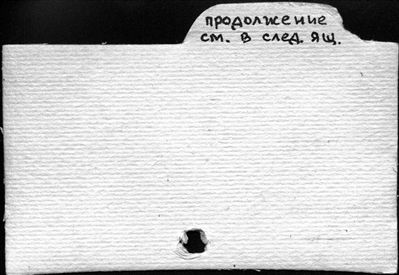 продолжение
см. в след. ящ.